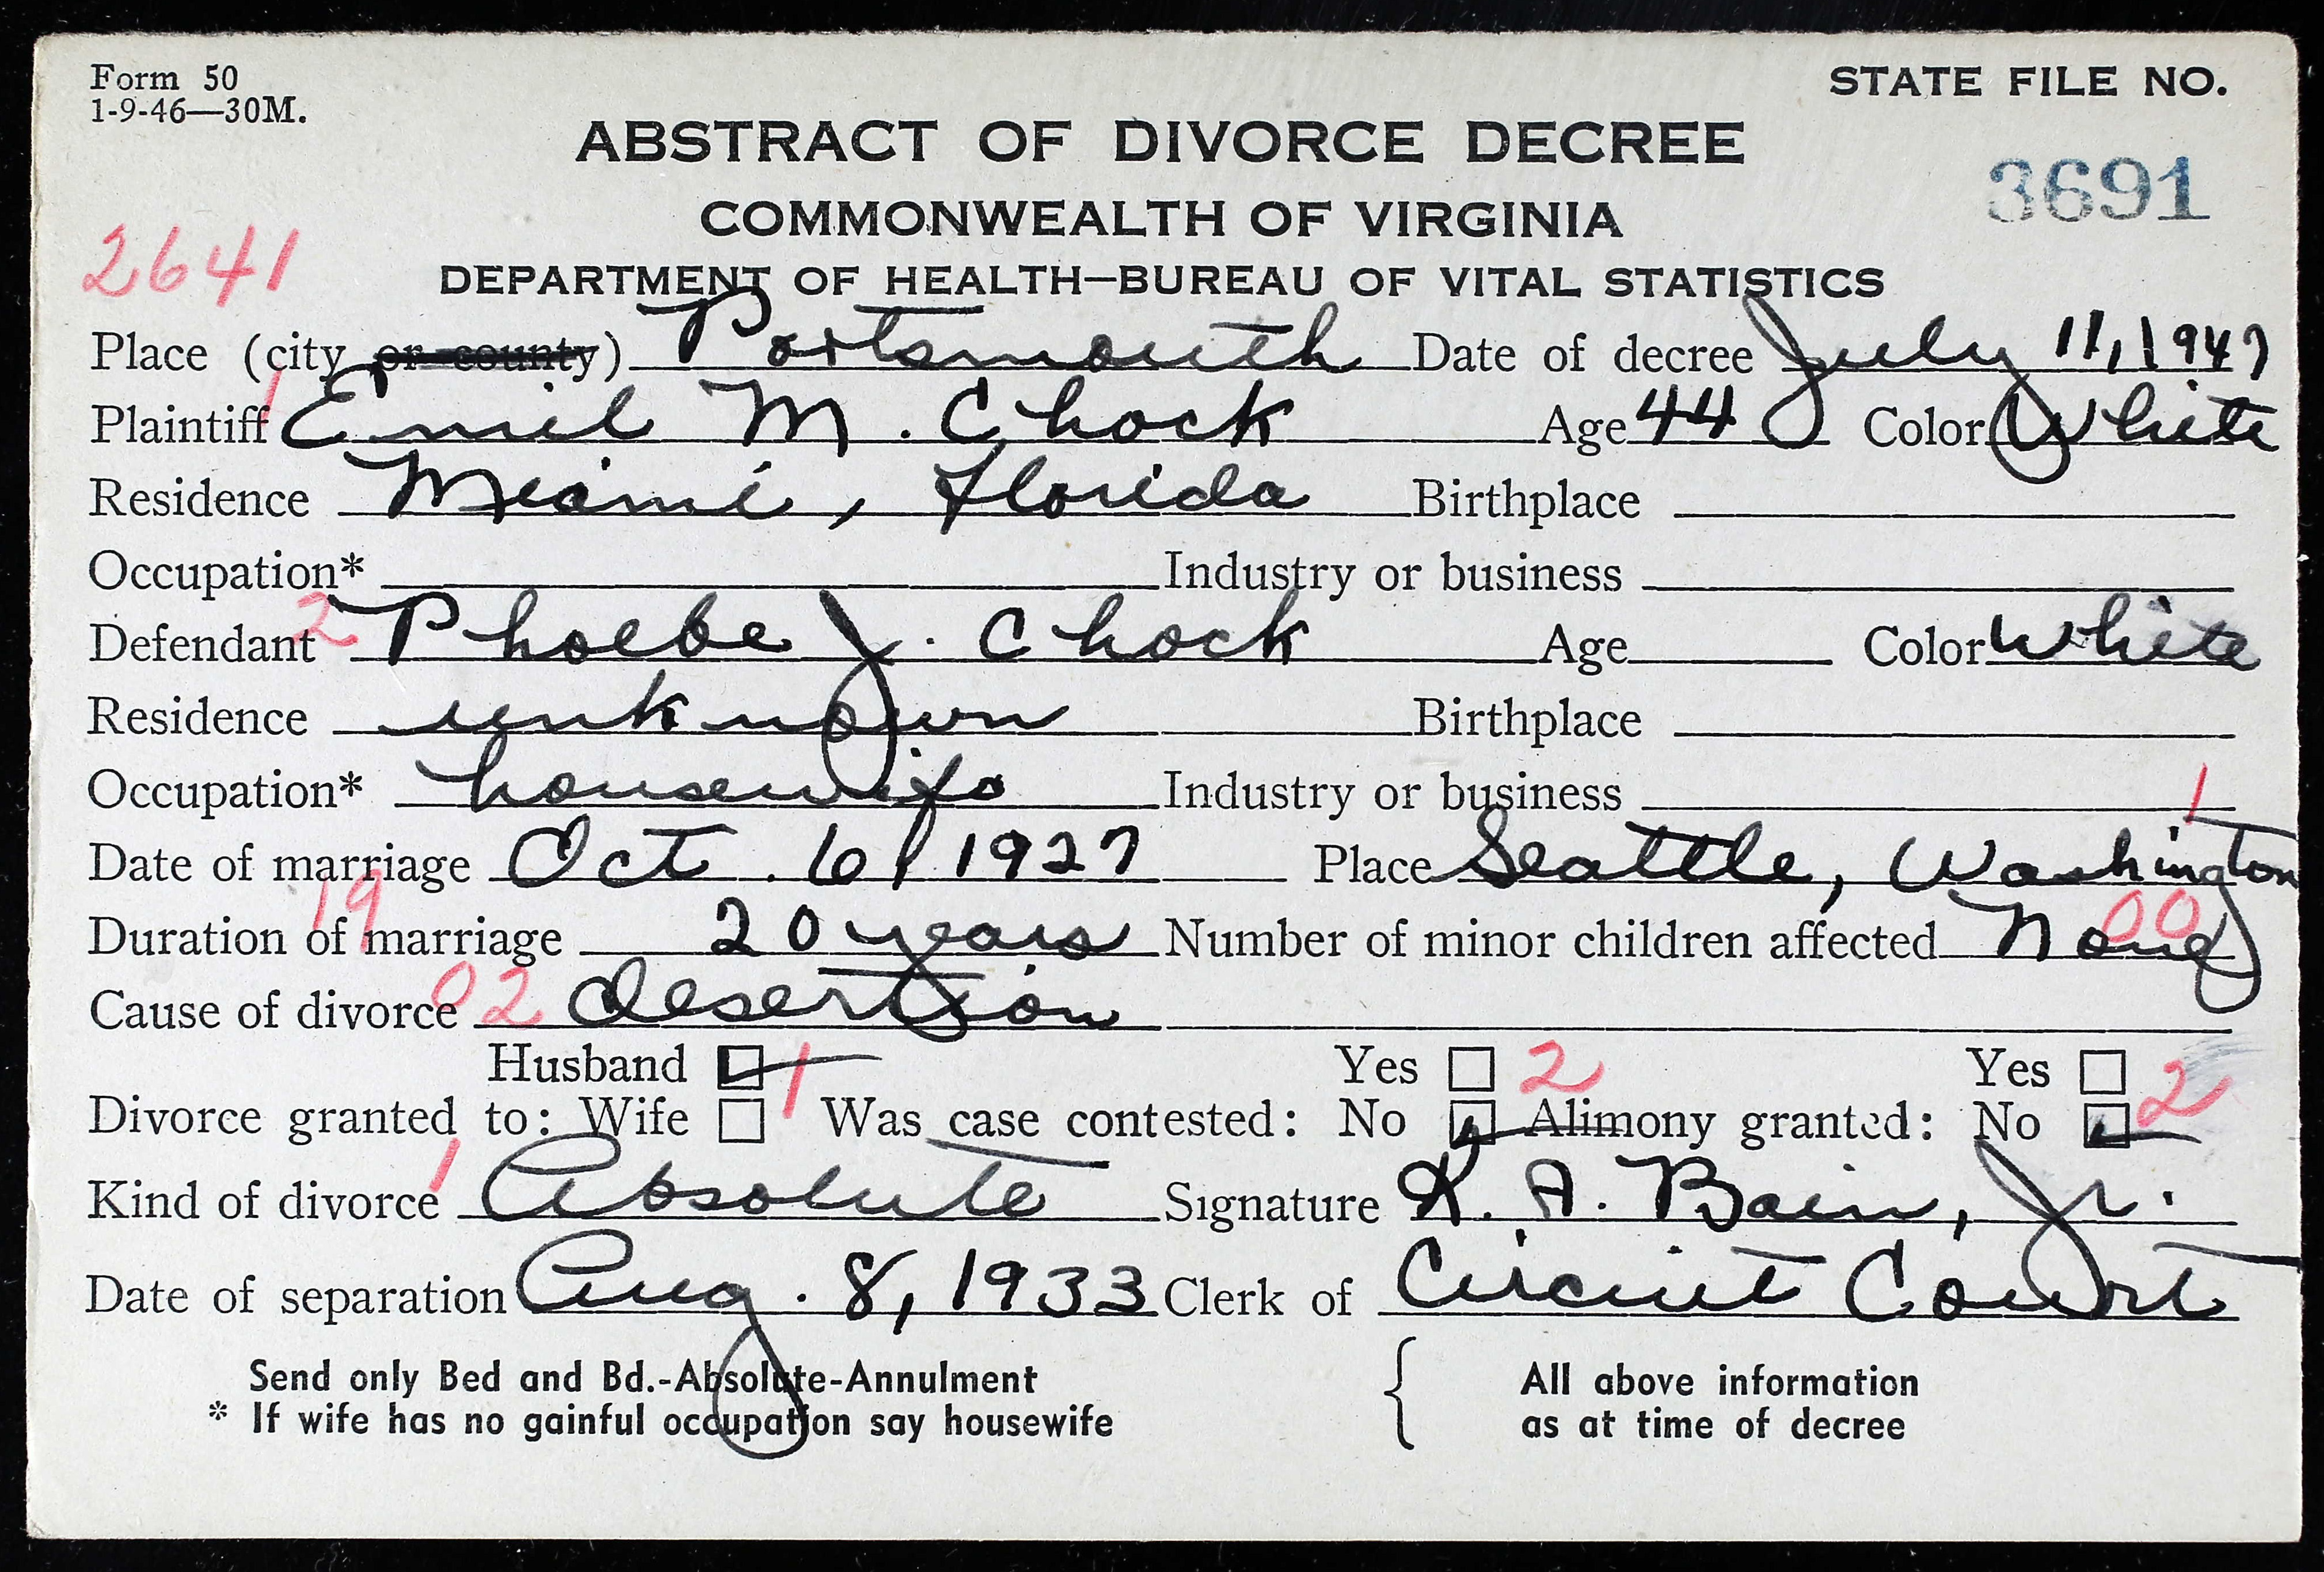 Form 50
1-9-46—30M.
STATE FILE NO.
ABSTRACT OF DIVORCE DECREE
3691
COMMONWEALTH OF VIRGINIA
2641
DEPARTMENT OF HEALTH—BUREAU OF VITAL STATISTICS
Place (city or county) Portsmouth Date of decree July 11, 1947
Plaintiff 1 Emil M. Chock Age 44 Color White
Residence Miami, Florida Birthplace
Occupation* Industry or business
Defendant 2 Phoebe J. Chock Age Color White
Residence unknown Birthplace
Occupation* housewife Industry or business 1
Date of marriage Oct. 6, 1927 Place Seattle, Washington
19 00
Duration of marriage 20 years Number of minor children affected None
Cause of divorce 02 desertion
Husband 1 Yes 2 Yes 2
Divorce granted to: Wife Was case contested: No Alimony granted: No
Kind of divorce 1 Absolute Signature K. A. Bain, Jr.
Date of separation Aug. 8, 1933 Clerk of Circuit Court
Send only Bed and Bd.-Absolute-Annulment { All above information
* If wife has no gainful occupation say housewife as at time of decree